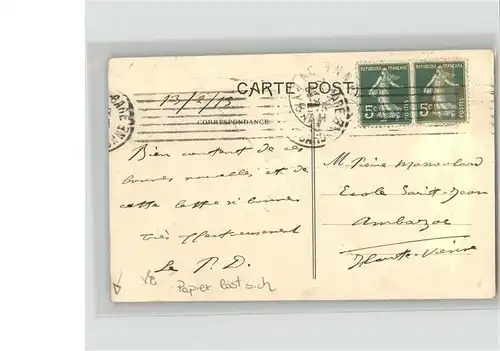 CARTE POST
13/2/13
CORRESPONDANCE
RÉPUBLIQUE FRANÇAISE
5c
POSTES
RÉPUBLIQUE FRANÇAISE
5c
POSTES
Bien content de ces
bonnes nouvelles et de
cette lettre si bonnes
Très affectueusement
Le P. D.
M. Pierre
Ecole Saint-Jean
Ambazac
Haute-Vienne
Papier löst sich